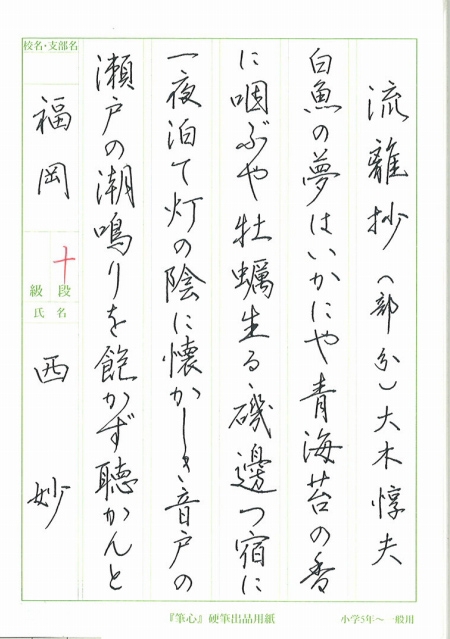 流離抄（部分）大木惇夫
白魚の夢はいかにや青海苔の香
に咽ぶや牡蠣生るゝ磯邊つ宿に
一夜泊て灯の陰に懐かしき音戸の
瀬戸の潮鳴りを飽かず聴かんと
校名・支部名
福岡
十
級段
氏名
西 妙
『筆心』硬筆出品用紙
小学5年〜一般用